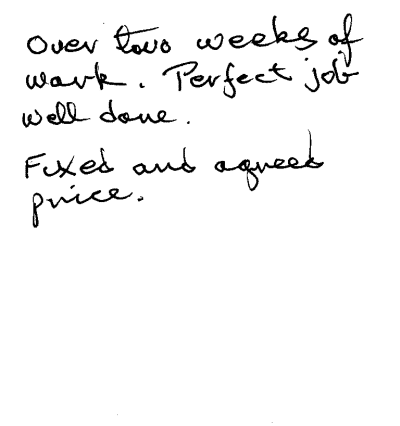 Over two weeks of
work. Perfect job
well done.
Fixed and agreed
price.